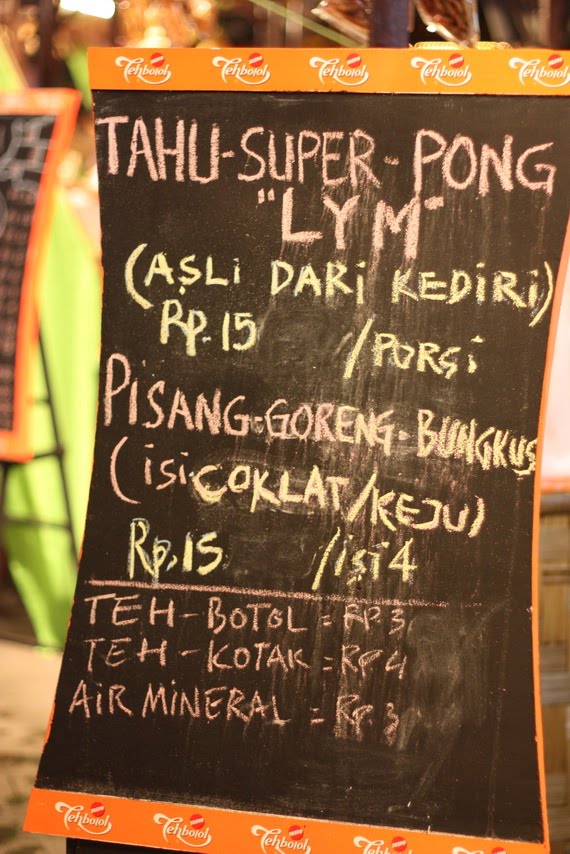 Tehbotol Tehbotol Tehbotol Tehbotol Tehbotol
TAHU-SUPER-PONG
"LYM"
(ASLi DARi KEDiRi)
RP. 15 /PORSi
PiSANG-GORENG-BUNGKUS
(iSi COKLAT/KEJU)
Rp. 15 /iSi 4
TEH-BOTOL = RP 3
TEH-KOTAK = RP 4
AiR MiNERAL = Rp. 3
Tehbotol Tehbotol Tehbotol Tehbotol Tehbotol